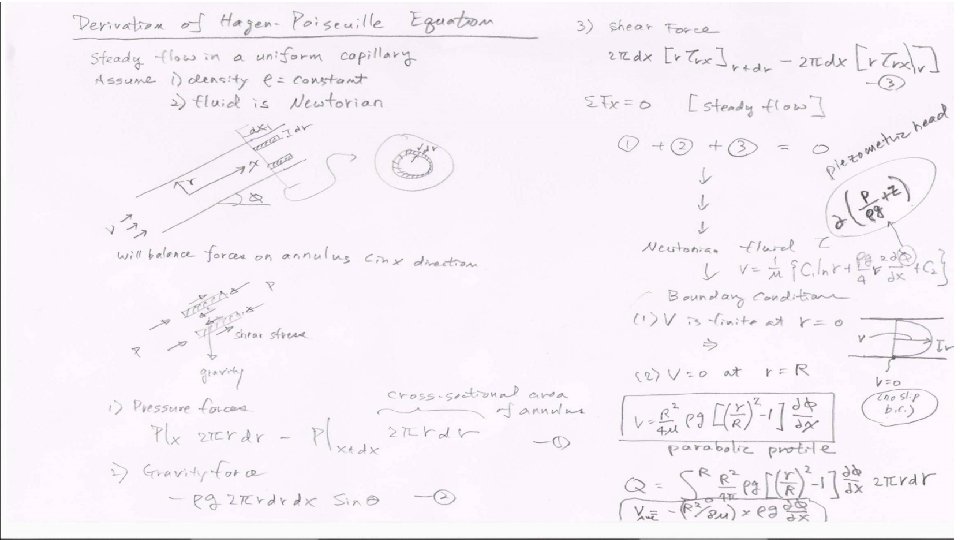 Derivation of Hagen-Poiseuille Equation
Steady flow in a uniform capillary
Assume 1) density ρ = constant
2) fluid is Newtonian
dx
dr
r
x
θ
V
dr
will balance forces on annulus (in x direction
P
P
shear stress
gravity
1) Pressure forces
cross-sectional area of annulus
P|x 2πrdr - P|x+dx 2πrdr —①
2) Gravity force
- ρg 2πrdrdx Sinθ —②
3) Shear Force
2πdx [r τrx]r+dr - 2πdx [r τrx|r]
—③
ΣFx = 0 [steady flow]
① + ② + ③ = 0
piezometric head
∂(P/ρg + z)
Newtonian fluid τ
V = 1/μ {C1 ln r + ρg/4 r² ∂Φ/∂x + C2}
Boundary Conditions
(1) V is finite at r = 0
⇒
(2) V = 0 at r = R
V
r
V=0
(no slip b.c.)
V = R²/4μ ρg [(r/R)² - 1] ∂Φ/∂x
parabolic profile
Q = ∫0R R²/4μ ρg [(r/R)² - 1] ∂Φ/∂x 2πrdr
Vave = -(R²/8μ) × ρg ∂Φ/∂x